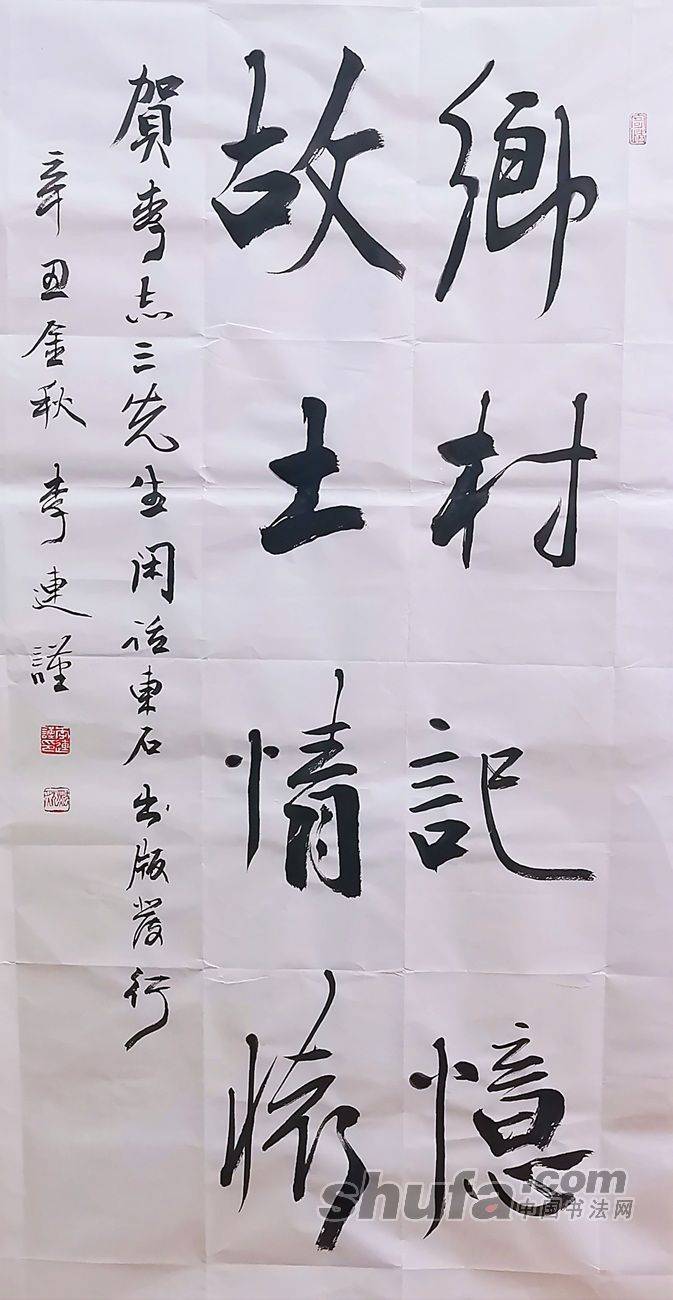 鄉村記憶
故土情懷
賀志三先生闲话東石出版發行
辛丑金秋 李連謹
shufa.com
中国书法网